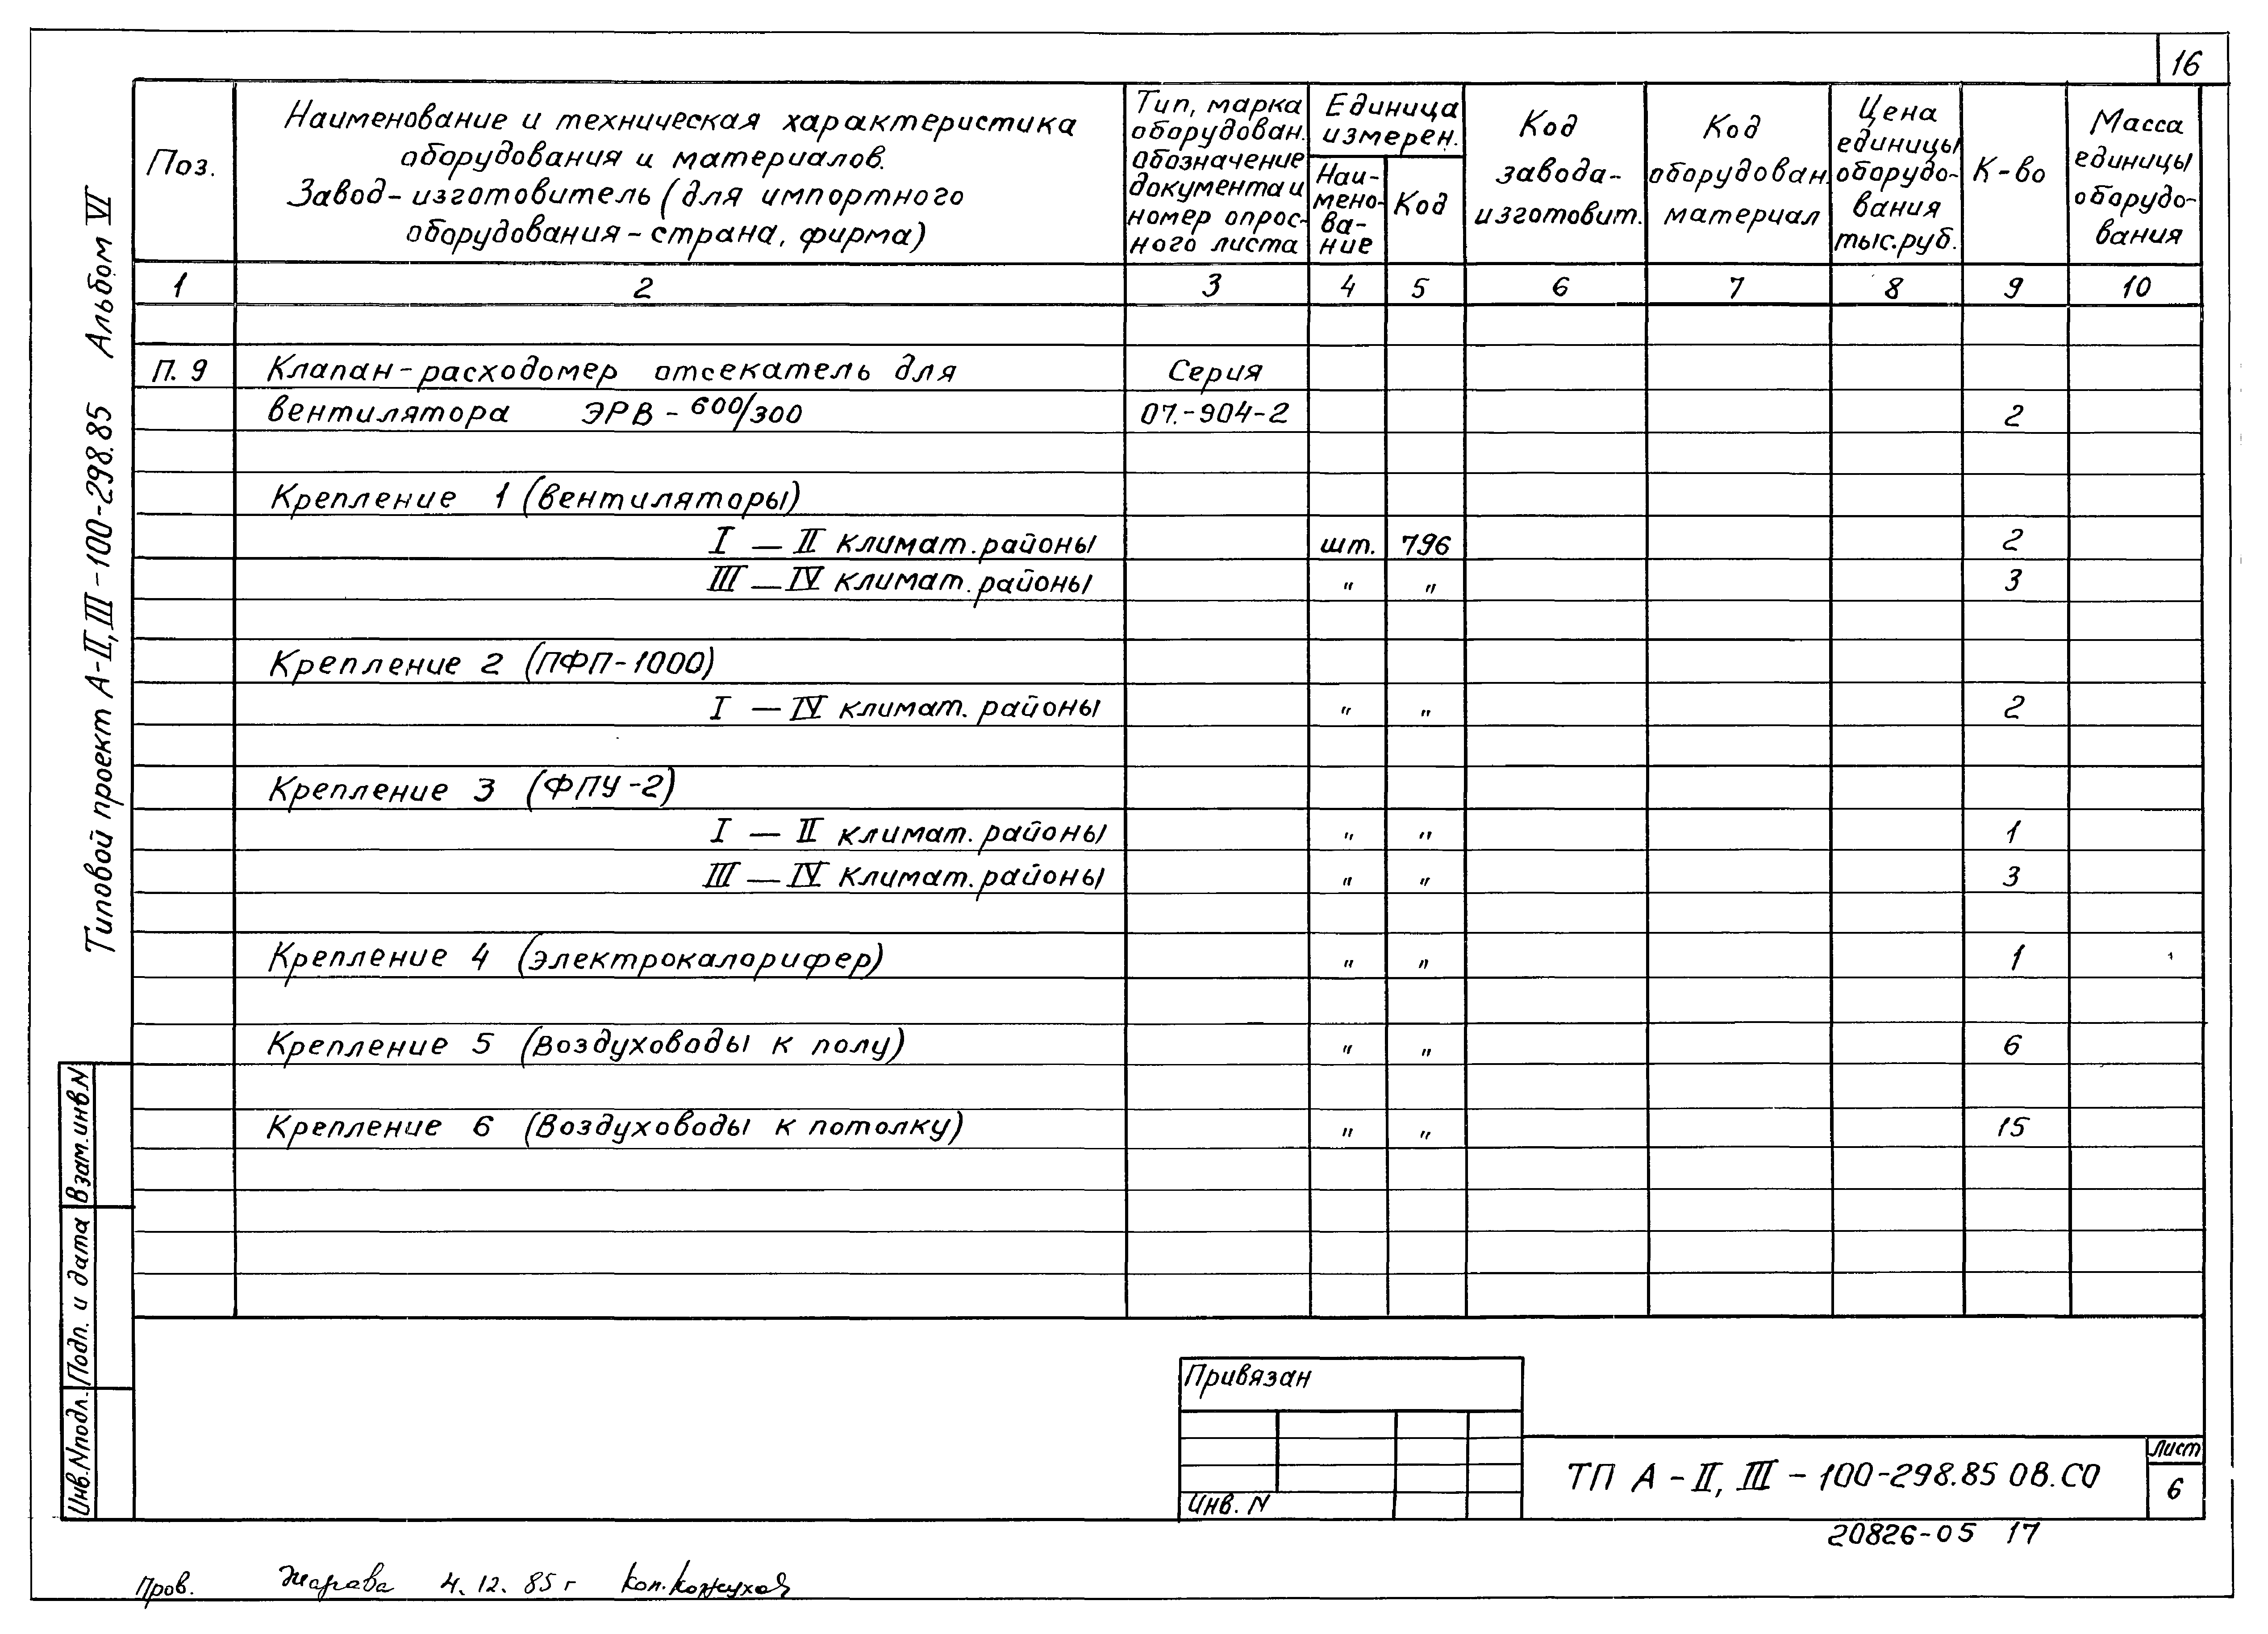 16
Типовой проект А-II, III-100-298.85 Альбом VI
Поз.
Наименование и техническая характеристика
оборудования и материалов.
Завод-изготовитель (для импортного
оборудования-страна, фирма)
Тип, марка
оборудован.
обозначение
документа и
номер опрос-
ного листа
Единица
измерен.
Наи-
мено-
ва-
ние
Код
Код
завода-
изготовит.
Код
оборудован.
материал
Цена
единицы
оборудо-
вания
тыс.руб.
К-во
Масса
единицы
оборудо-
вания
1 2 3 4 5 6 7 8 9 10
П. 9 Клапан-расходомер отсекатель для Серия
вентилятора ЭРВ-600/300 07.-904-2 2
Крепление 1 (вентиляторы)
I — II климат. районы шт. 796 2
III — IV климат. районы " " 3
Крепление 2 (ПФП-1000)
I — IV климат. районы " " 2
Крепление 3 (ФПУ-2)
I — II климат. районы " " 1
III — IV климат. районы " " 3
Крепление 4 (электрокалорифер) " " 1
Крепление 5 (Воздуховоды к полу) " " 6
Крепление 6 (Воздуховоды к потолку) " " 15
Взам.инв.N
Подп. и дата
Инв.Nподл.
Привязан
Инв. N
ТП А-II, III-100-298.85 ОВ.СО
Лист
6
20826-05 17
Пров. 4.12.85г Коп.